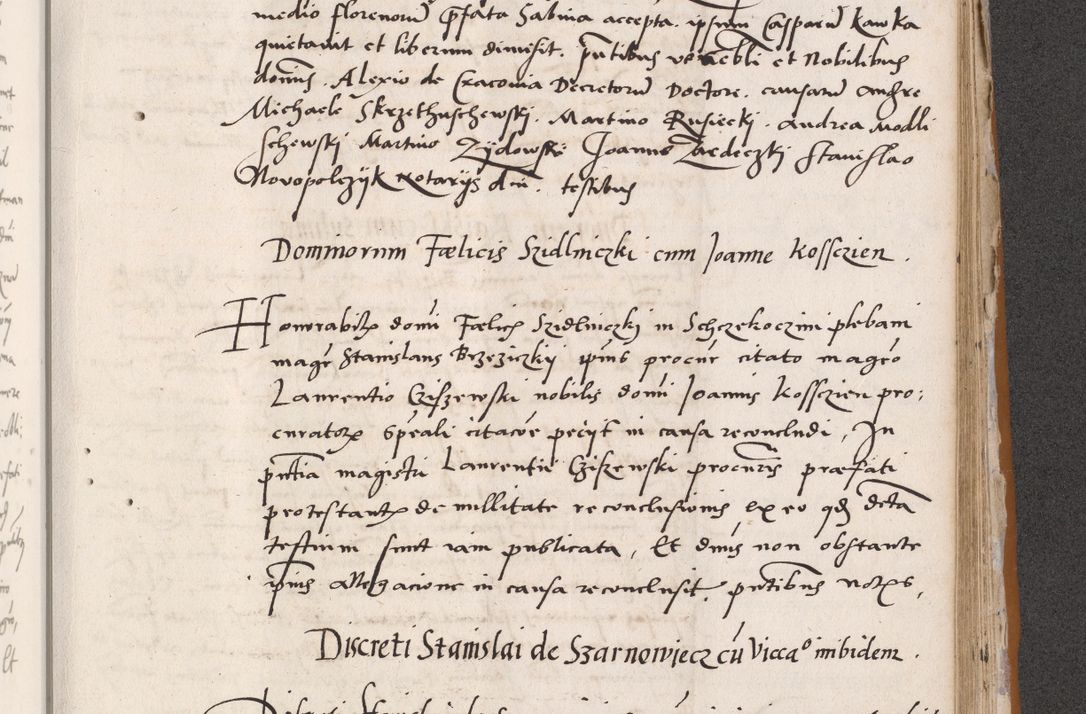 medio florenorū p̄fata Sabina accepta. ipsum Casparū Kawka
quietavit et liberum dimisit. pn̄tibus venēbli et Nobilibus
domīs. Alexio de Cracovia Decretorū Doctore. causarū
Michaele Skrzethuschewskj. Martino Rusieckj. Andrea Modli
schewskj Martino Zydowskj Joanne Stanislao
Novopolczijk Notarijs dni. testibus
Dominorum Fælicis Szidlniczki cum Joanne Kossczien.
Honorabilis domī Fælicis Szidlniczkj in Schczekoczini plebani
magr Stanislaus Brzeziczkij ipius procur citato magro
Laurentio Cziszewski nobilis domī Joannis Kossczien pro:
curatore spēali citacōe pecijt in causa reconcludi, In
pn̄tia magistri Laurentii Cziszewski procuris præfati
protestantis de nullitate reconclusionis ex eo qđ dicta
testium sunt iam publicata, Et dnus non obstante
ipius allegacione in causa reconclusit. pn̄tibus notis.
Discreti Stanislai de Szarnowiecz cū Vicca° inibidem.